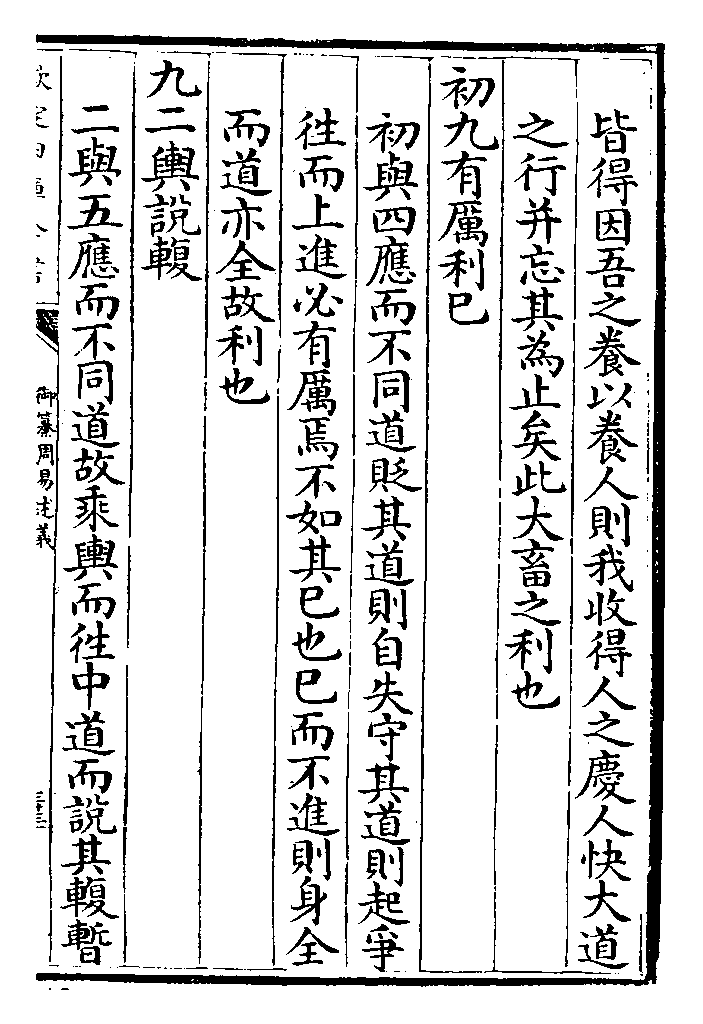 皆得因吾之養以養人則我收得人之慶人快大道
之行并忘其為止矣此大畜之利也
初九有厲利已
初與四應而不同道貶其道則自失守其道則起爭
徃而上進必有厲焉不如其已也已而不進則身全
而道亦全故利也
九二輿說輹
二與五應而不同道故乘輿而徃中道而說其輹暫
御纂周易述義